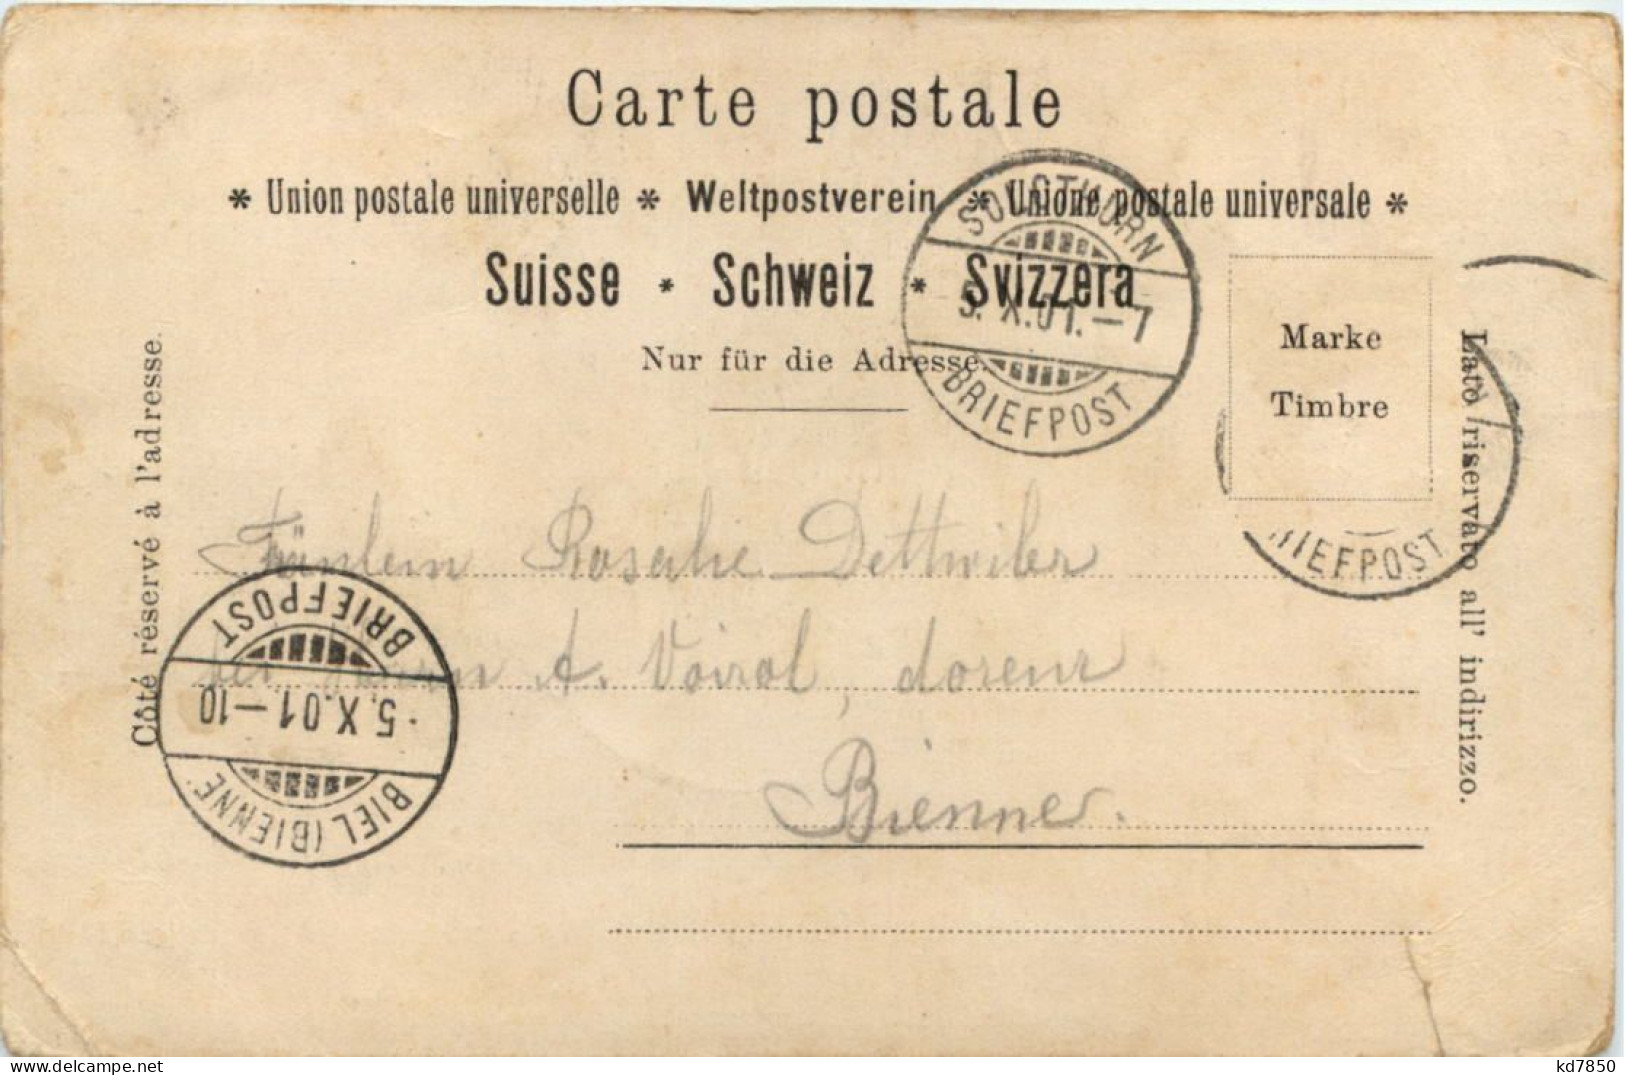 Carte postale
* Union postale universelle * Weltpostverein * Unione postale universale *
Suisse * Schweiz * Svizzera
Nur für die Adresse.
SOLOTHURN
5. X.01.–7
BRIEFPOST
Marke
Timbre
BRIEFPOST
Côté réservé à l'adresse.
Lato riservato all' indirizzo.
Fräulein Rosalie Dettwiler
bei Herrn A. Voirol, doreur
Bienne.
BRIEFPOST
5.X.01–10
BIEL (BIENNE)
delcampe.net
kd7850